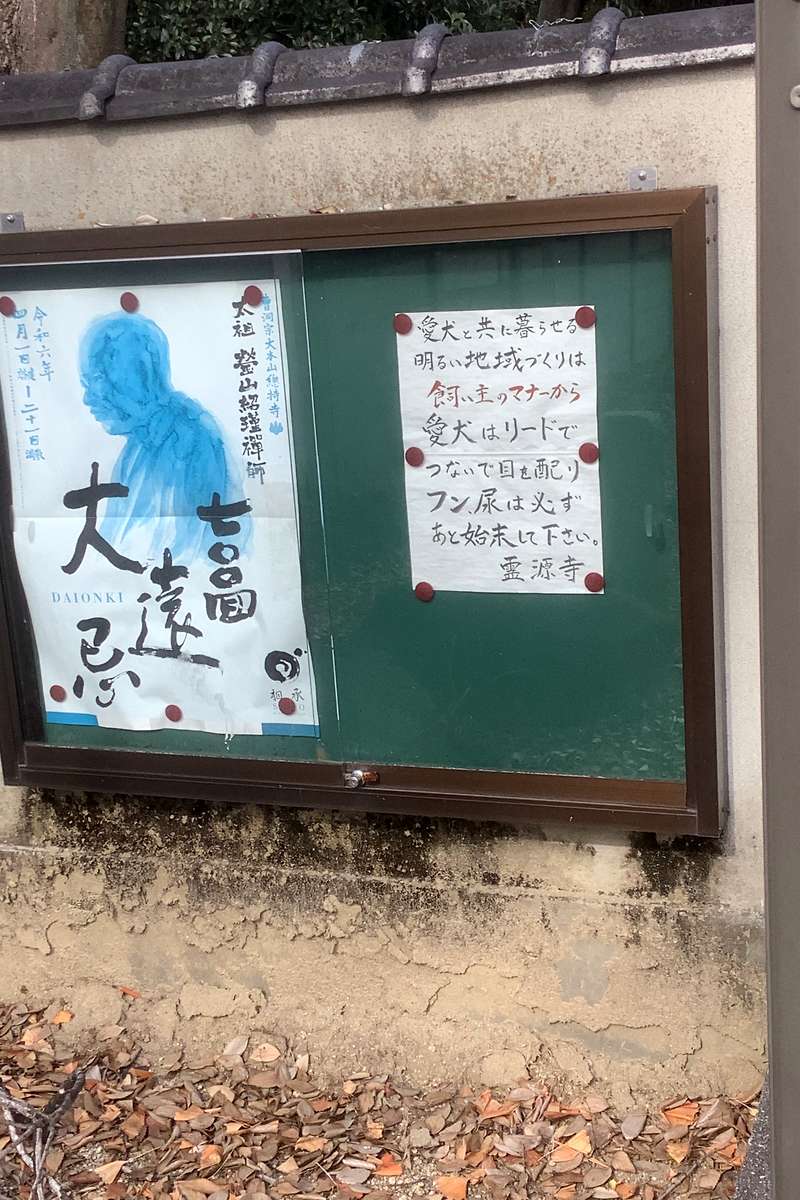 曹洞宗大本山總持寺
太祖 瑩山紹瑾禪師
七〇〇回
大遠忌
DAIONKI
令和六年
相承
愛犬と共に暮らせる
明るい地域づくりは
飼い主のマナーから
愛犬はリードで
つないで目を配り
フン、尿は必ず
あと始末して下さい。
霊源寺